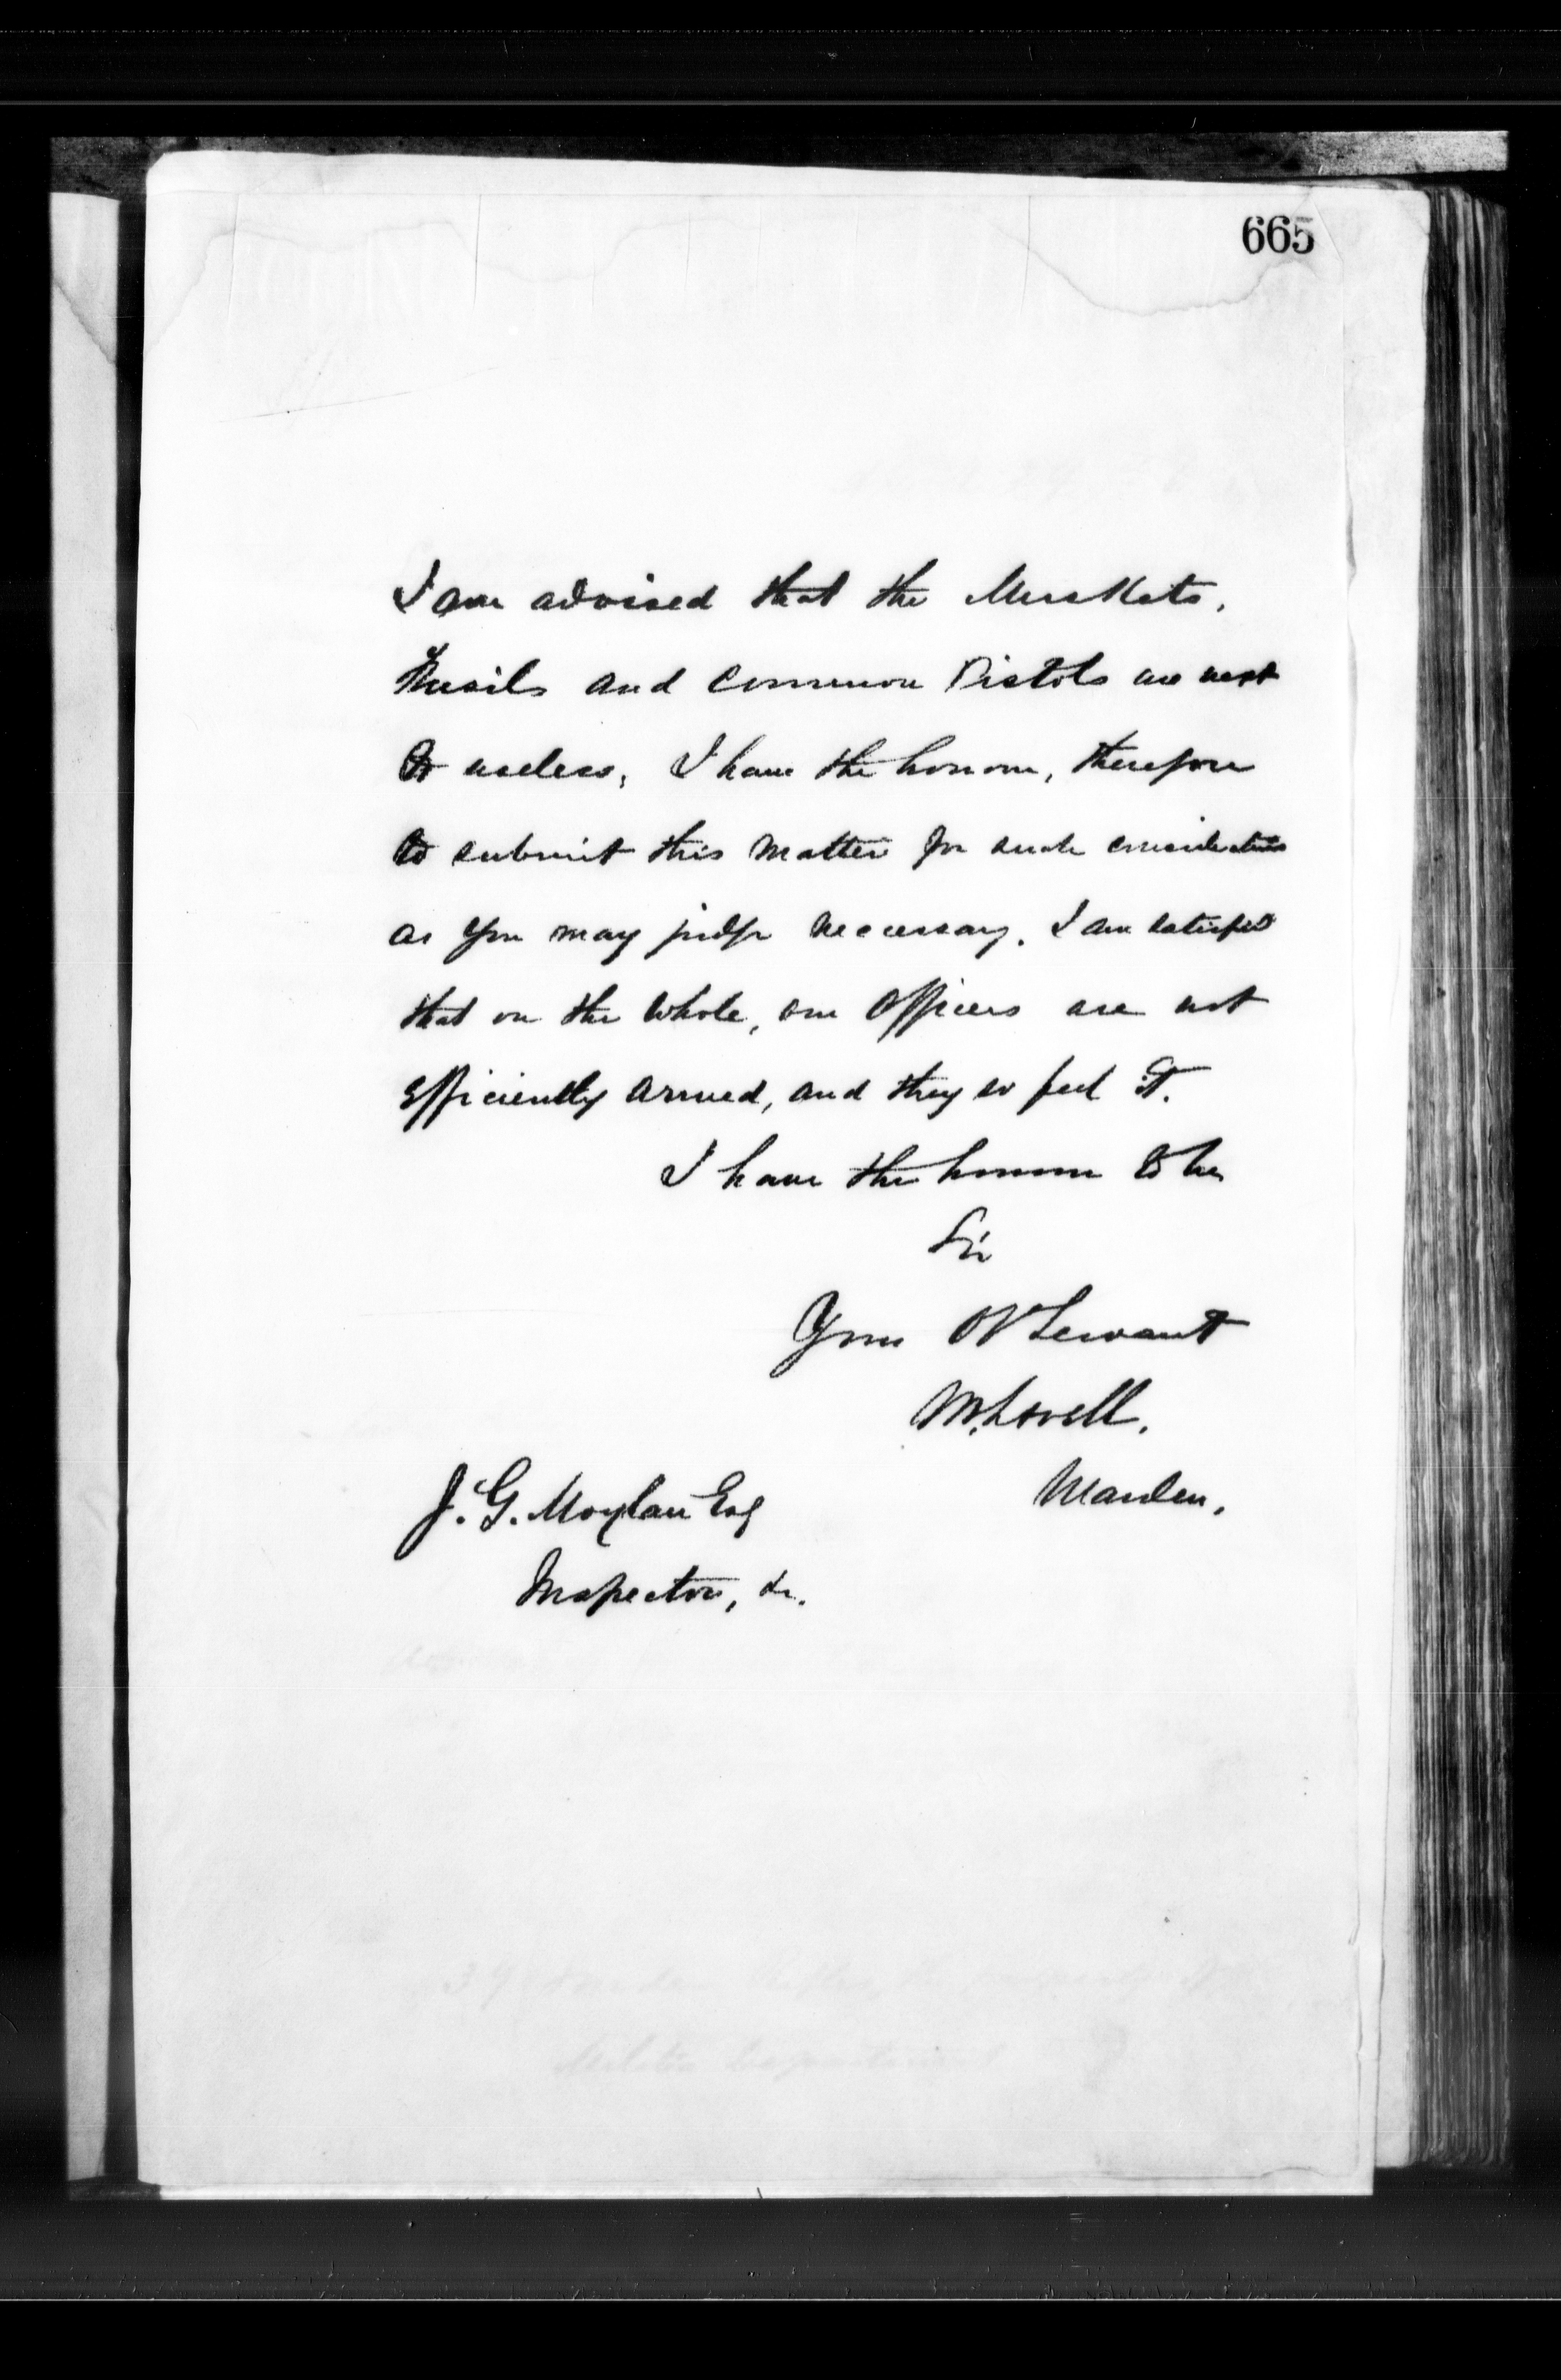 665
I am advised that the Muskets,
Fusils and common Pistols are next
to useless, I have the honour, therefore
to submit this matter for such consideration
as you may judge necessary. I am satisfied
that on the whole, our Officers are not
efficiently armed, and they so feel it.
I have the honour to be
Sir
Your Ob Servant
M. Lavell.
Warden.
J. G. Moylan Esq
Inspector, &c.